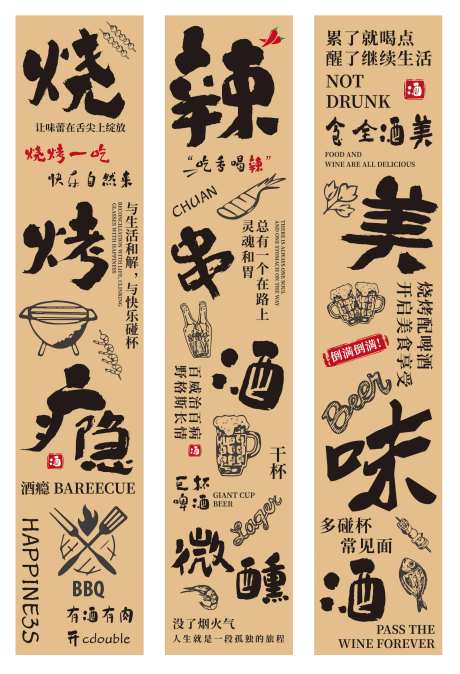 烧
让味蕾在舌尖上绽放
烧烤一吃
快乐自然来
烤
与生活和解，与快乐碰杯
RECONCILIATION WITH LIFE, CLINKING
GLASSES WITH HAPPINESS
瘾
酒
酒瘾 BAREECUE
HAPPINE3S
BBQ
有酒有肉
开cdouble
辣
“吃香喝辣”
CHUAN
串
总有一个在路上
灵魂和胃
THERE IS ALWAYS ONE SOUL
AND ONE STOMACH ON THE WAY
酒
百威治百病
野格斯长情
酒
干杯
巨杯
啤酒
GIANT CUP
BEER
Lager
微
醺
没了烟火气
人生就是一段孤独的旅程
累了就喝点
醒了继续生活
NOT
DRUNK
酒
食全酒美
FOOD AND
WINE ARE ALL DELICIOUS
美
烧烤配啤酒
开启美食享受
倒满倒满！
Beer
味
多碰杯
常见面
酒
PASS THE
WINE FOREVER